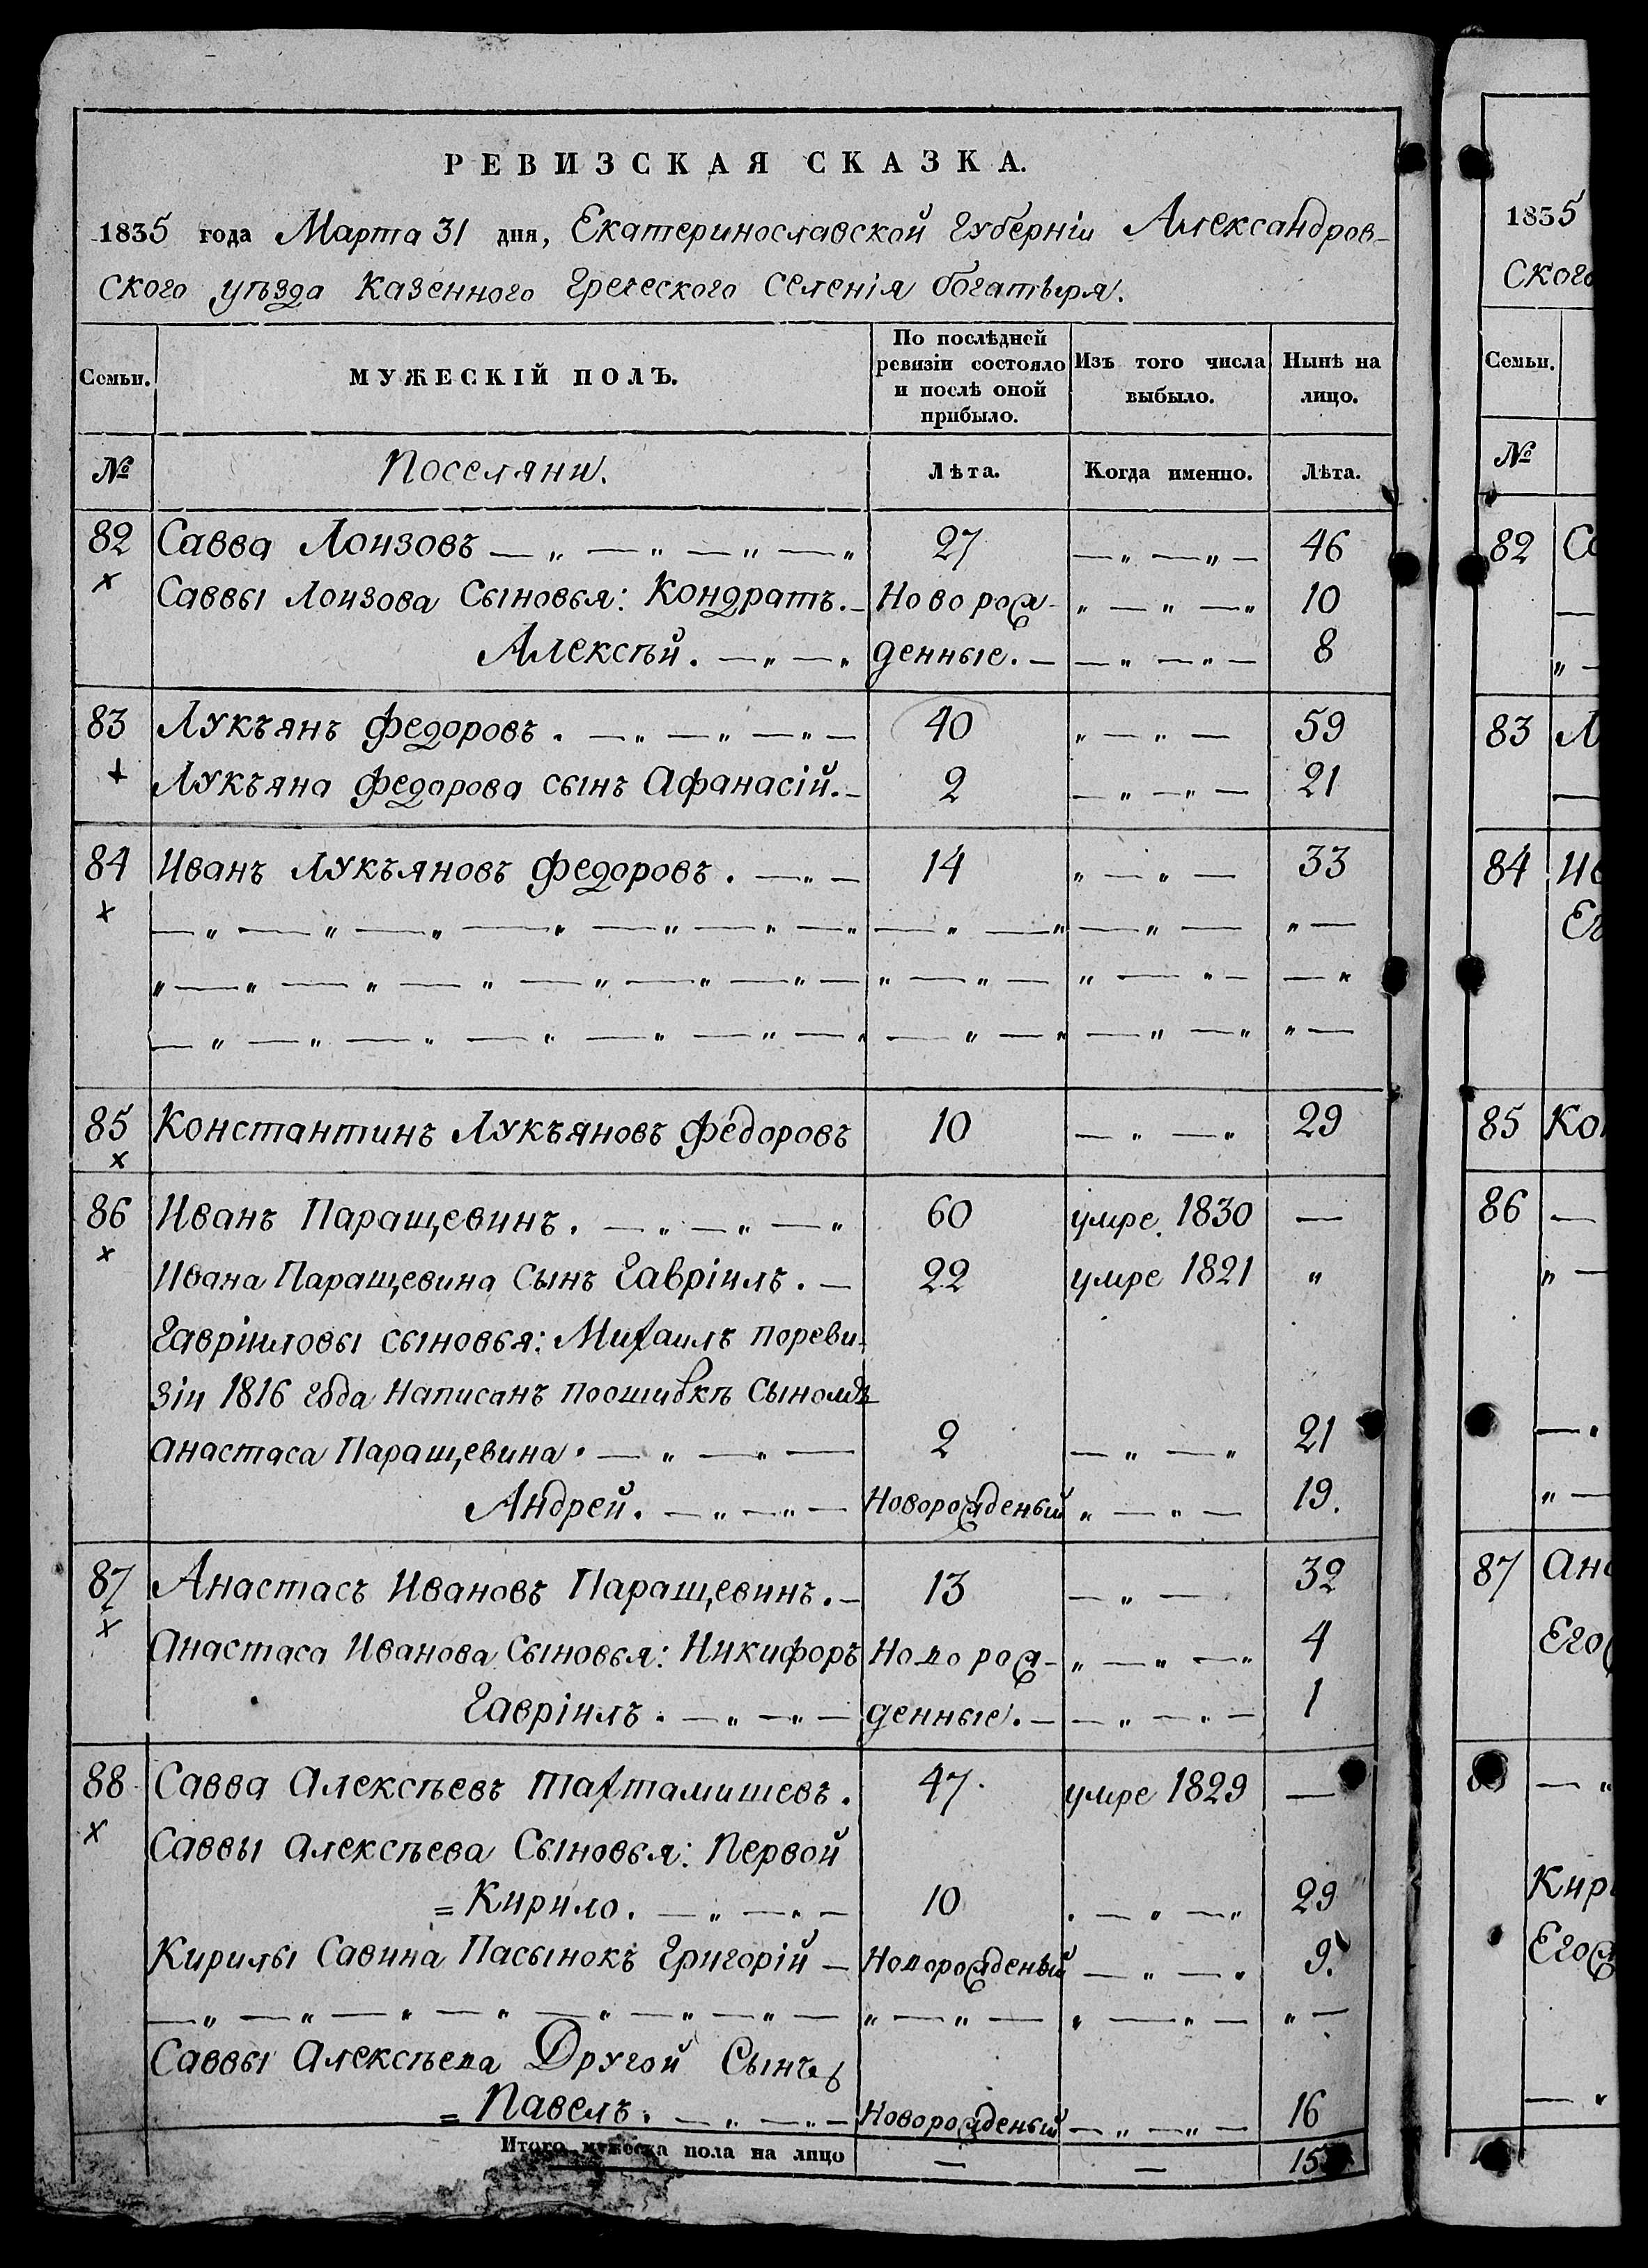 РЕВИЗСКАЯ СКАЗКА.
1835 года Марта 31 дня, Екатеринославской Губерніи Александров-
ского уѣзда Казенного Греческого Селенія богатыря.
Семьи. МУЖЕСКІЙ ПОЛЪ. По послѣдней ревизіи состояло и послѣ оной прибыло. Изъ того числа выбыло. Нынѣ на лицо.
№ Поселяни. Лѣта. Когда именно. Лѣта.
82 Савва Лоизовъ — „ — „ — „ — „ 27 — „ — „ — 46
х Саввы Лоизова Сыновья: Кондратъ. — Новорож- „ — „ — „ 10
Алексѣй. — „ — „ денные. — — „ — „ — 8
83 Лукъянъ Федоровъ. — „ — „ — „ — 40 „ — „ — 59
х Лукъяна Федорова сынъ Афанасій. — 2 — „ — „ — 21
84 Иванъ Лукъяновъ Федоровъ. — „ — 14 „ — „ — 33
х — „ — „ — „ — „ — „ — „ — „ — „ — „ — „ — „ —
„ — „ — „ — „ — „ — „ — „ — „ — „ — „ — „ — — „
— „ — „ — „ — „ — „ — „ — „ — „ — „ — „ — „ „ —
85 Константинъ Лукъяновъ Федоровъ 10 — „ — „ 29
х
86 Иванъ Паращевинъ. — „ — „ — „ 60 умре 1830 —
х Ивана Паращевина Сынъ Гавріилъ. — 22 умре 1821 „
Гавріиловы сыновья: Михаилъ пореви-
зіи 1816 года Написанъ поошибкѣ Сыномъ
Анастаса Паращевина. — „ — „ — 2 — „ — „ 21
Андрей. — „ — „ — Новорожденый „ — „ — 19.
87 Анастасъ Ивановъ Паращевинъ. — 13 — „ — 32
х Анастаса Иванова Сыновья: Никифоръ Новорож- „ — „ — „ 4
Гавріилъ. — „ — „ — денные. — — „ — „ — 1
88 Савва Алексѣевъ Тахтамишевъ. 47. умре 1829 —
х Саввы Алексѣева Сыновья: Первой
= Кирило. — „ — „ — 10 „ — „ — „ 29
Кирилы Савина Пасынокъ Григорій — Новорожденый — „ — „ 9.
— „ — „ — „ — „ — „ — „ — „ — „ — „ — „ — „ — „ —
Саввы Алексѣева Другой Сынъ
= Павелъ. — „ — „ — Новорожденый — „ — „ — 16
Итого мужеска пола на лицо — — 15
1835
ского
Семьи.
№
82
83
84
85
86
87